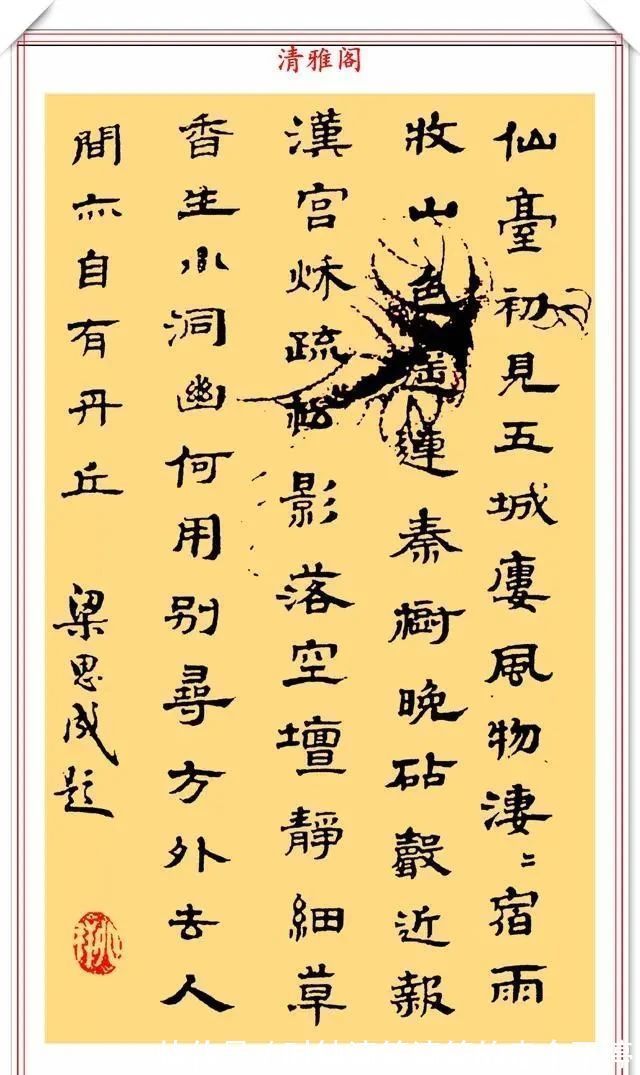 清雅阁
仙臺初見五城廔風物淒〻宿雨
收山色遥連秦樹晚砧聲近報
漢宮秌疏松影落空壇靜細草
香生小洞幽何用别尋方外去人
間亦自有丹丘
梁思成題